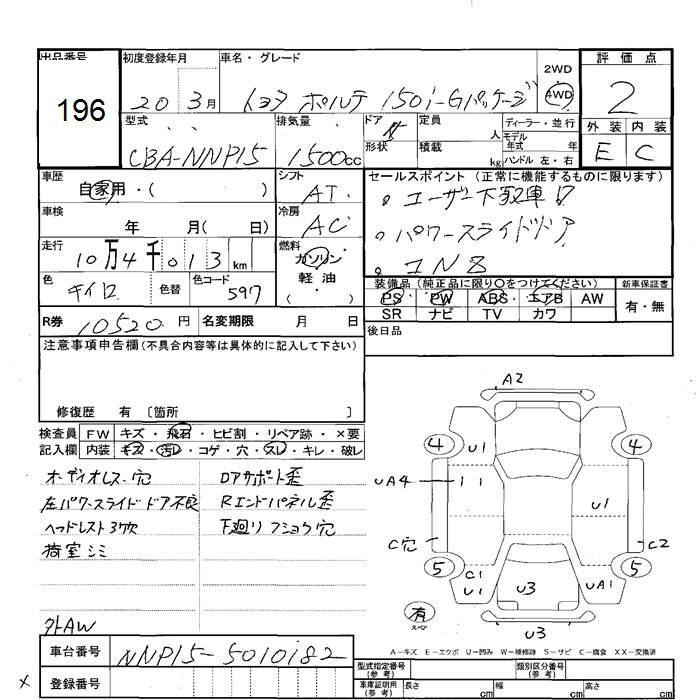 出品番号 196
初度登録年月 20 3月
車名・グレード トヨタ ポルテ 150i-Gパッケージ
2WD 4WD
評価点 2
外装 内装
E C
型式 CBA-NNP15
排気量 1500cc
ドア 形状
定員 人
積載 kg
ディーラー・並行
モデル年式 年
ハンドル 左・右
車歴 自家用・( )
シフト AT
セールスポイント(正常に機能するものに限ります)
。ユーザー下取車!
。パワースライドドア
。1N8
車検 年 月( 日)
冷房 AC
走行 10万4千013km
燃料 ガソリン・軽油・( )
色 キイロ 色替 色コード 599
装備品(純正品に限り○をつけてください)
PS・PW・ABS・エアB AW
SR ナビ TV カワ
新車保証書 有・無
R券 10520円 名変期限 月 日
後日品
注意事項申告欄(不具合内容等は具体的に記入して下さい)
修復歴 有 〔箇所 〕
検査員 FW キズ・飛石・ヒビ割・リペア跡・×要
記入欄 内装 キズ・汚レ・コゲ・穴・スレ・キレ・破レ
オーディオレス・穴 Dアサポート歪
左パワースライドドア不良 Rエンドパネル歪
ヘッドレスト3ケ欠 下廻りフショウ穴
荷室シミ
外AW
A2
4 U1 4
UA4 U1
C穴 C2
5 C1 U1 U3 UA1 5
有 スペア
U3
A-キズ E-エクボ U-凹み W-補修跡 S-サビ C-腐食 XX-交換済
車台番号 NNP15-5010182
型式指定番号(参考) 類別区分番号(参考)
× 登録番号
車庫証明用(参考) 長さ cm 幅 cm 高さ cm